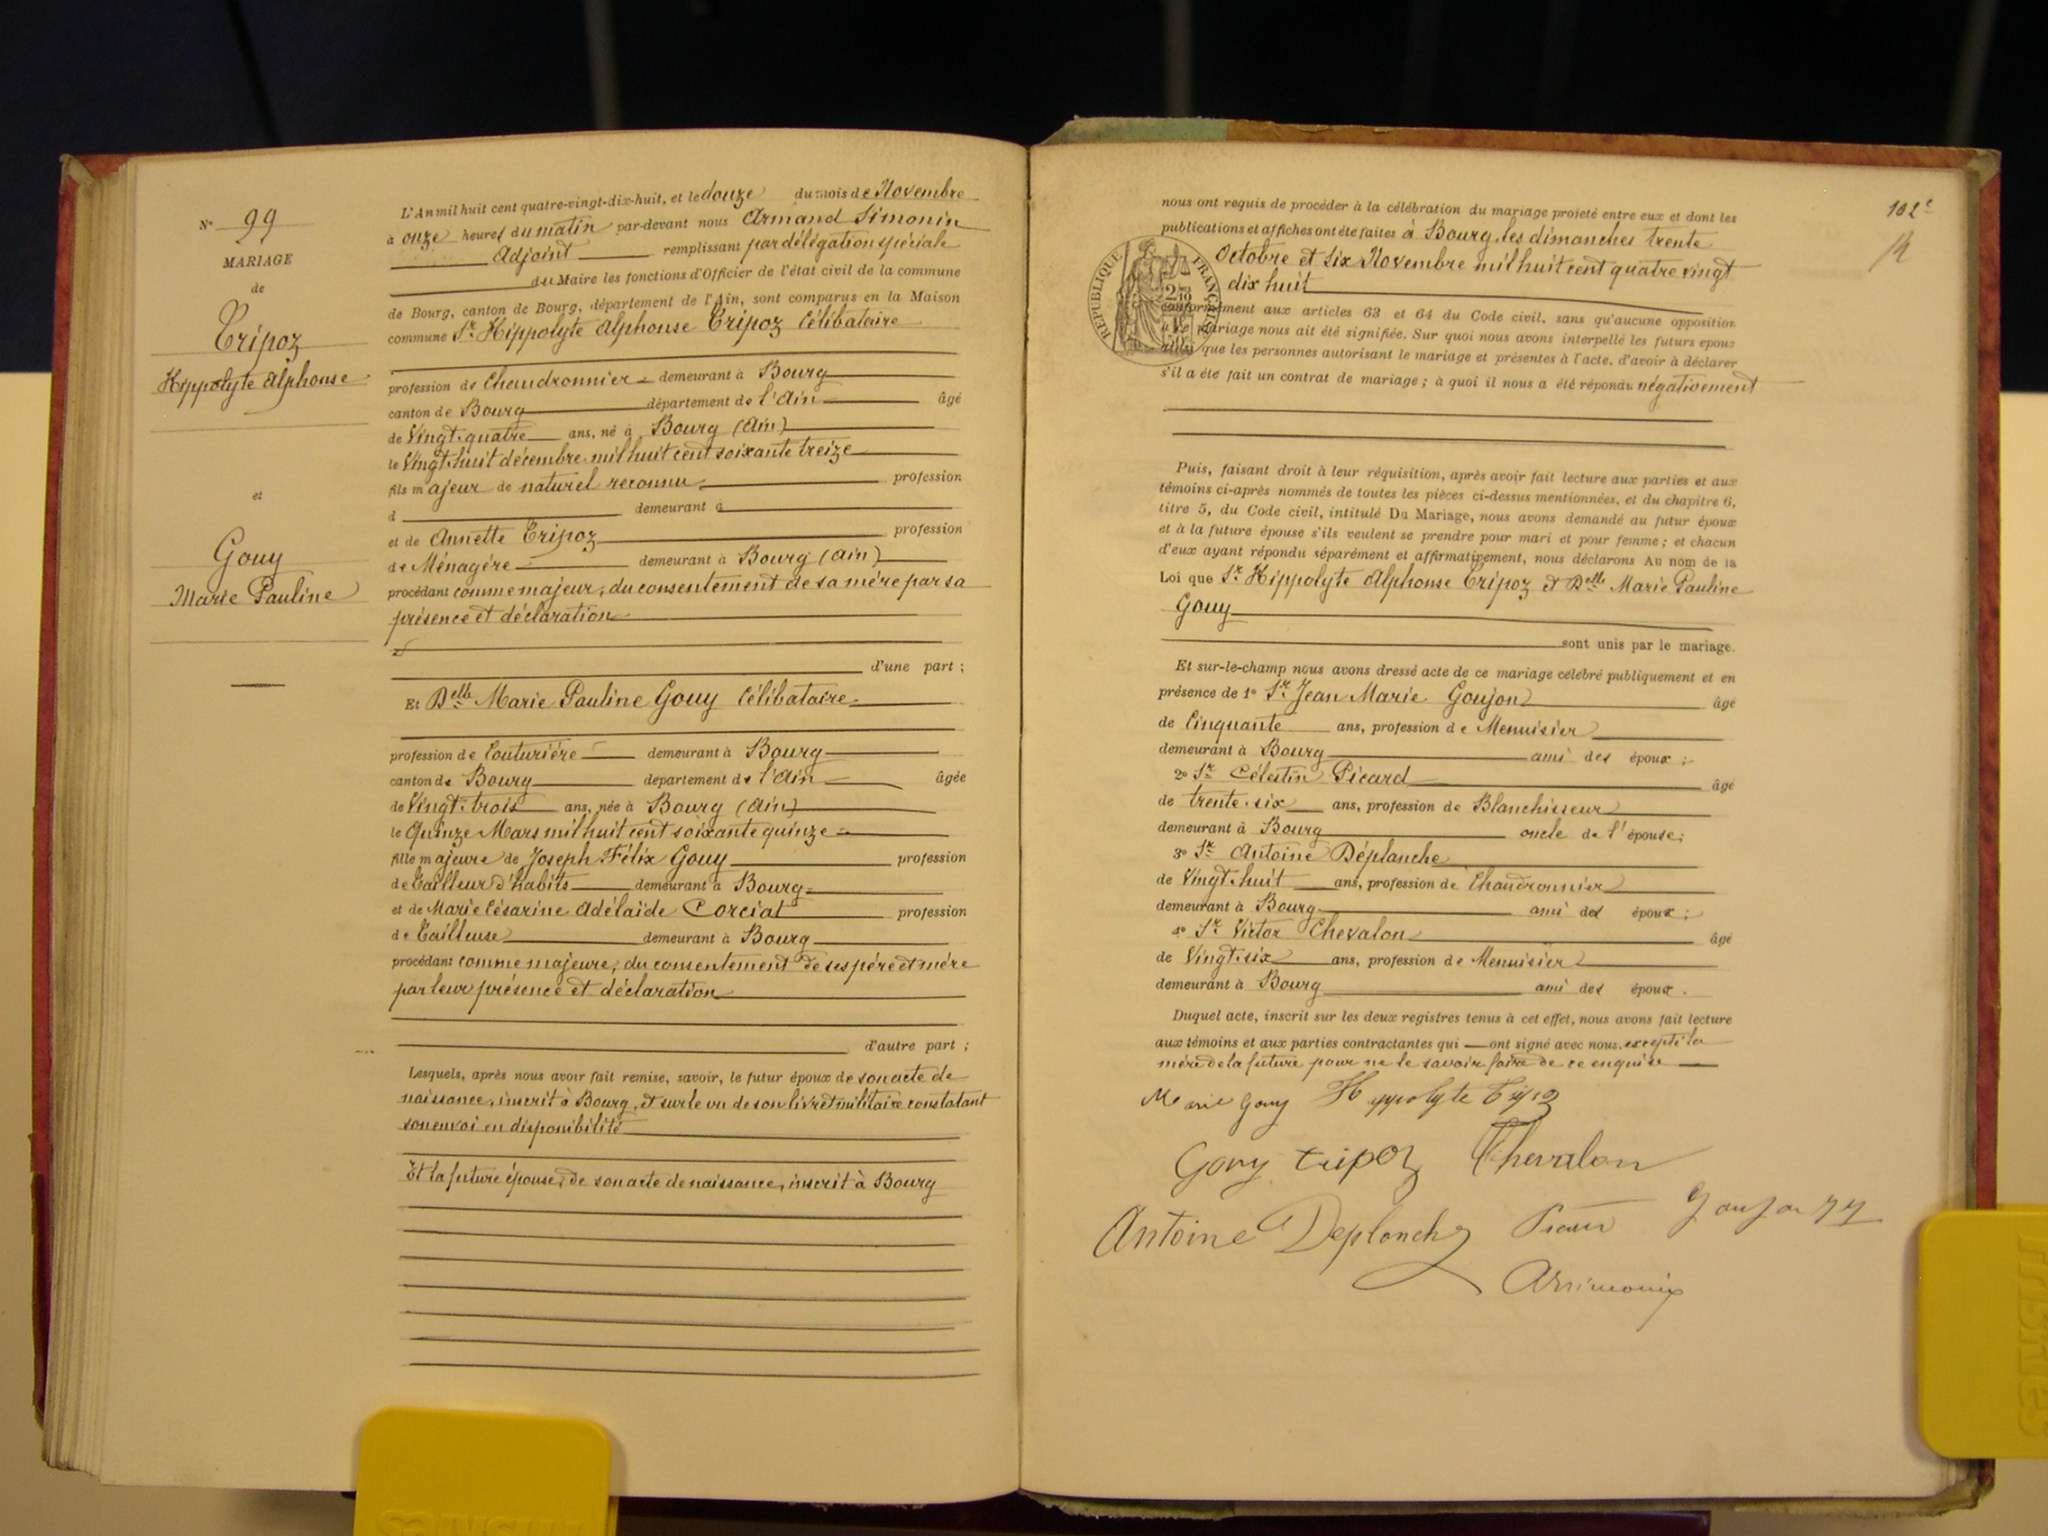 N° 99
MARIAGE
de
Tripoz
Hippolyte Alphonse
et
Gouy
Marie Pauline
L'An mil huit cent quatre-vingt-dix-huit, et le douze du mois de Novembre
à onze heures du matin par-devant nous Armand Simonin
Adjoint remplissant par délégation spéciale
du Maire les fonctions d'Officier de l'état civil de la commune
de Bourg, canton de Bourg, département de l'Ain, sont comparus en la Maison
commune Sr Hippolyte Alphonse Tripoz Célibataire
profession de Chaudronnier demeurant à Bourg
canton de Bourg département de l'Ain âgé
de Vingt-quatre ans, né à Bourg (Ain)
le Vingt-huit décembre mil huit cent soixante treize
fils majeur de naturel reconnu profession
d demeurant à
et de Annette Tripoz profession
de Ménagère demeurant à Bourg (Ain)
procédant comme majeur, du consentement de sa mère par sa
présence et déclaration
d'une part ;
Et Delle Marie Pauline Gouy Célibataire
profession de Couturière demeurant à Bourg
canton de Bourg département de l'Ain âgée
de Vingt-trois ans, née à Bourg (Ain)
le Quinze Mars mil huit cent soixante quinze
fille majeure de Joseph Félix Gouy profession
de Tailleur d'habits demeurant à Bourg
et de Marie Césarine Adélaïde Corciat profession
de Tailleuse demeurant à Bourg
procédant comme majeure, du consentement de ses père et mère
par leur présence et déclaration
d'autre part ;
Lesquels, après nous avoir fait remise, savoir, le futur époux de son acte de
naissance, inscrit à Bourg, et sur le vu de son livret militaire constatant
son envoi en disponibilité
Et la future épouse, de son acte de naissance, inscrit à Bourg
102e
nous ont requis de procéder à la célébration du mariage projeté entre eux et dont les
publications et affiches ont été faites à Bourg les dimanches trente
Octobre et six Novembre mil huit cent quatre vingt
dix huit
RÉPUBLIQUE FRANÇAISE
conformément aux articles 63 et 64 du Code civil, sans qu'aucune opposition
à ce mariage nous ait été signifiée. Sur quoi nous avons interpellé les futurs époux
ainsi que les personnes autorisant le mariage et présentes à l'acte, d'avoir à déclarer
s'il a été fait un contrat de mariage ; à quoi il nous a été répondu négativement
Puis, faisant droit à leur réquisition, après avoir fait lecture aux parties et aux
témoins ci-après nommés de toutes les pièces ci-dessus mentionnées, et du chapitre 6,
titre 5, du Code civil, intitulé Du Mariage, nous avons demandé au futur époux
et à la future épouse s'ils veulent se prendre pour mari et pour femme ; et chacun
d'eux ayant répondu séparément et affirmativement, nous déclarons Au nom de la
Loi que Sr Hippolyte Alphonse Tripoz et Delle Marie Pauline
Gouy
sont unis par le mariage.
Et sur-le-champ nous avons dressé acte de ce mariage célébré publiquement et en
présence de 1° Sr Jean Marie Goujon âgé
de Cinquante ans, profession de Menuisier
demeurant à Bourg ami des époux ;
2° Sr Célestin Picard âgé
de trente-six ans, profession de Blanchisseur
demeurant à Bourg oncle de l'épouse ;
3° Sr Antoine Déplanche
de Vingt-huit ans, profession de Chaudronnier
demeurant à Bourg ami des époux ;
4° Sr Victor Chevalon âgé
de Vingt-six ans, profession de Menuisier
demeurant à Bourg ami des époux.
Duquel acte, inscrit sur les deux registres tenus à cet effet, nous avons fait lecture
aux témoins et aux parties contractantes qui ont signé avec nous, excepté la
mère de la future pour ne le savoir faire de ce enquise
Marie Gouy Hyppolyte Tripoz
Gouy tripoz Chevalon
Antoine Deplanche Picard Goujon